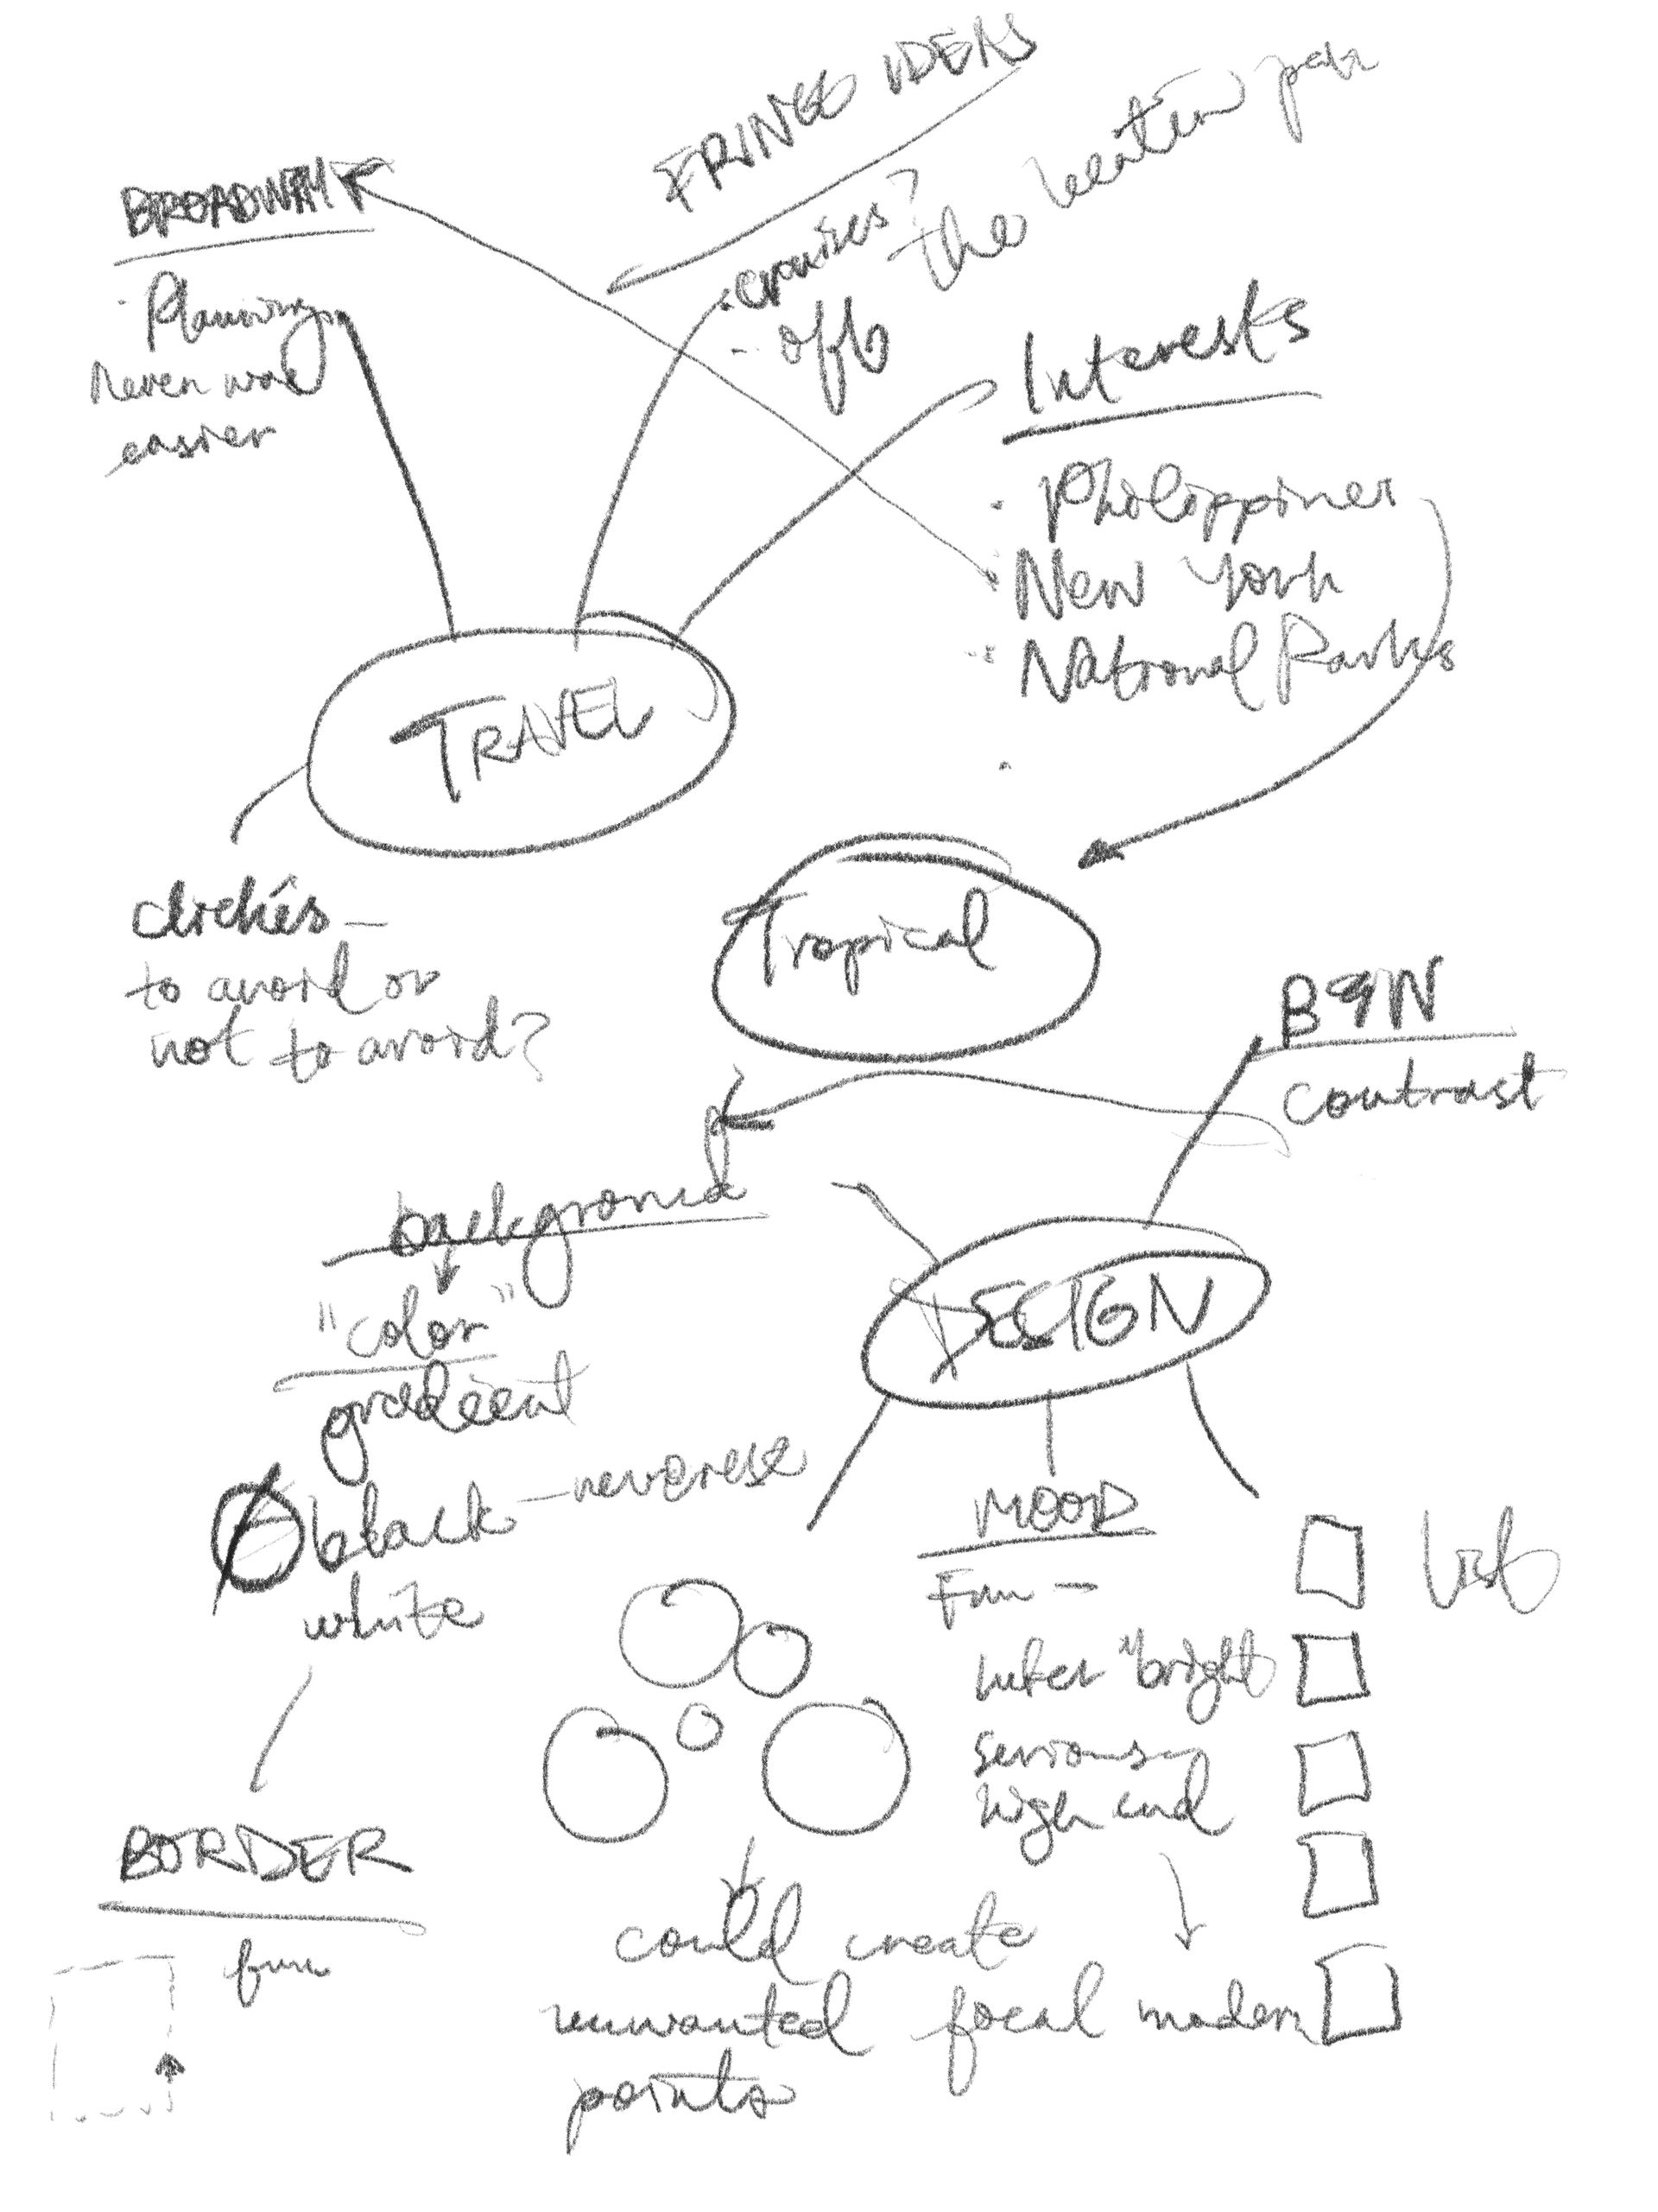 FRINGE IDEAS
· cruises?
· off the beaten path
BROADWAY
· Planning
never was
easier
Interests
· Philippines
New York
National Parks
TRAVEL
clichés –
to avoid or
not to avoid?
Tropical
B&W
contrast
background
"color"
gradient
black – reverse
white
DESIGN
MOOD
Fun –
"bright
serious –
high end
modern
list
BORDER
fun
could create
unwanted focal
points